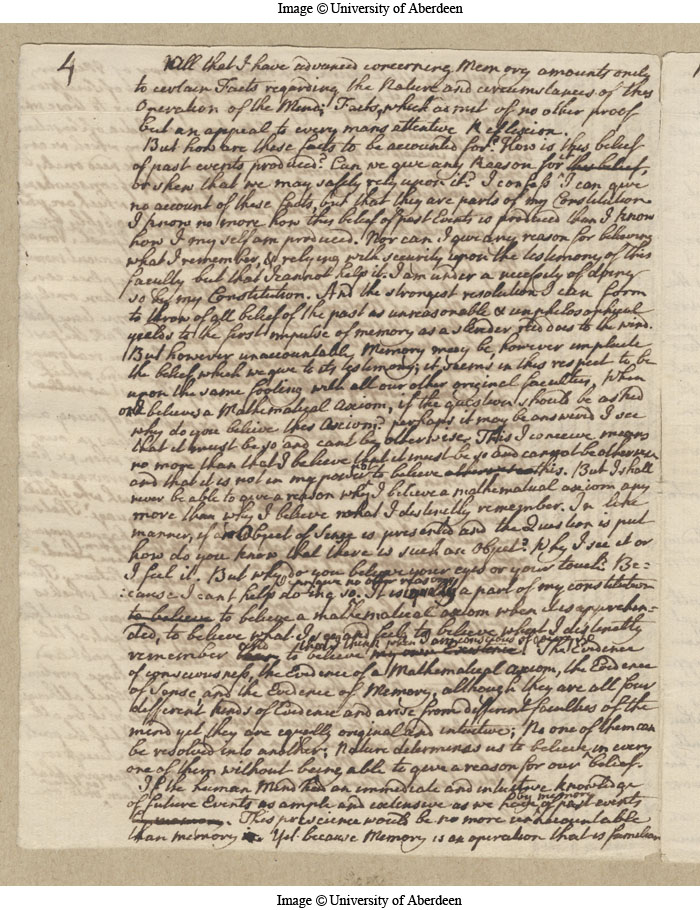 Image © University of Aberdeen
4
All that I have advanced concerning Memory amounts only
to certain Facts regarding the Nature and circumstances of this
Operation of the Mind; Facts, which admit of no other proof
but an appeal to every mans attentive Reflexion.
But how are these facts to be accounted for? How is this belief
of past events produced? Can we give any Reason for this belief,
or shew that we may safely rely upon it? I confess I can give
no account of these facts, but that they are parts of my Constitution
I know no more how this belief of past Events is produced than I know
how I my self am produced. Nor can I give any reason for believing
what I remember, & relying with security upon the testimony of this
faculty but that I cannot help it. I am under a necessity of doing
so by my Constitution. And the strongest resolution I can form
to throw of all belief of the past as unreasonable & unphilosophical
yields to the first impulse of memory as a slender reed does to the wind.
But however unaccountable Memory may be, however implicite
the belief which we give to its testimony; it seems in this respect to be
upon the same footing with all our other original faculties. When
one believes a Mathematical Axiom, if the question should be asked
why do you believe this Axiom? perhaps it may be answered I see
that it must be so and cant be otherwise. This I conceive means
no more than that I believe that it must be so and cannot be otherwise
and that it is not in my power not to believe otherwise this. But I shall
never be able to give a reason why I believe a mathematical axiom any
more than why I believe what I distinctly remember. In like
manner, if an Object of Sense is presented and the Question is put
how do you know that there is such an Object? Why I see it or
I feel it. But why do you believe your eyes or your touch? Be-
: cause I cant help doing so. I can give no other reason It is a part of my constitution
to believe to believe a mathematical axiom when it is apprehen-
ded, to believe what I see and feel, to believe what I distinctly
remember and to believe that I think when I am conscious of it. The Evidence
of consciousness, the Evidence of a Mathematical axiom, the Evidence
of Sense and the Evidence of Memory, although they are all four
different kinds of Evidence and arise from different faculties of the
mind yet they are equally original and intuitive; No one of them can
be resolved into another; Nature determines us to believe in every
one of them without being able to give a reason for our belief.
If the human Mind had an immediate and intuitive knowledge
of future Events as ample and extensive as we have by memory of past events
This prescience would be no more unaccountable
than memory is. Yet because Memory is an operation that is familiar
Image © University of Aberdeen